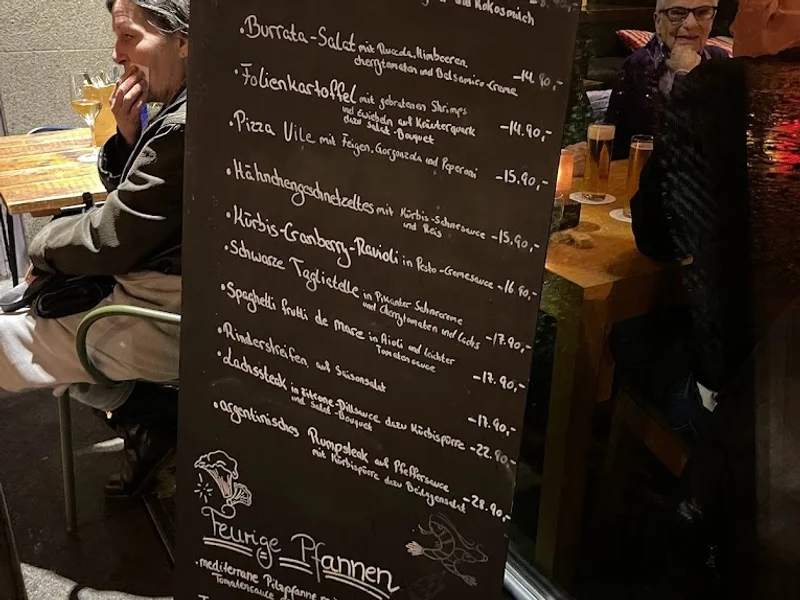 Kokosmilch
• Burrata-Salat mit Rucola, Himbeeren,
cherrytomaten und Balsamico-Creme -14.90,-
• Folienkartoffel mit gebratenen Shrimps
und Zwiebeln auf Kräuterquark
dazu Salat-Bouquet -14.90,-
• Pizza Vile mit Feigen, Gorgonzola und Peperoni -15.90,-
• Hähnchengeschnetzeltes mit Kürbis-Sahnesauce
und Reis -15.90,-
• Kürbis-Cranberry-Ravioli in Pesto-Cremesauce -16.90,-
• Schwarze Tagliatelle in Pikanter Sahnecreme
und Cherrytomaten und Lachs -17.90,-
• Spaghetti frutti de mare in Aioli und leichter
Tomatensauce -17.90,-
• Rinderstreifen auf Saisonsalat -17.90,-
• Lachssteak in Zitrone-Dillsauce dazu Kürbispürre
und Salat-Bouquet -22.90,-
• argentinisches Rumpsteak auf Pfeffersauce
mit Kürbispürre dazu Beilagensalat -28.90,-
Feurige Pfannen
• mediterrane Pilzpfanne
Tomatensauce